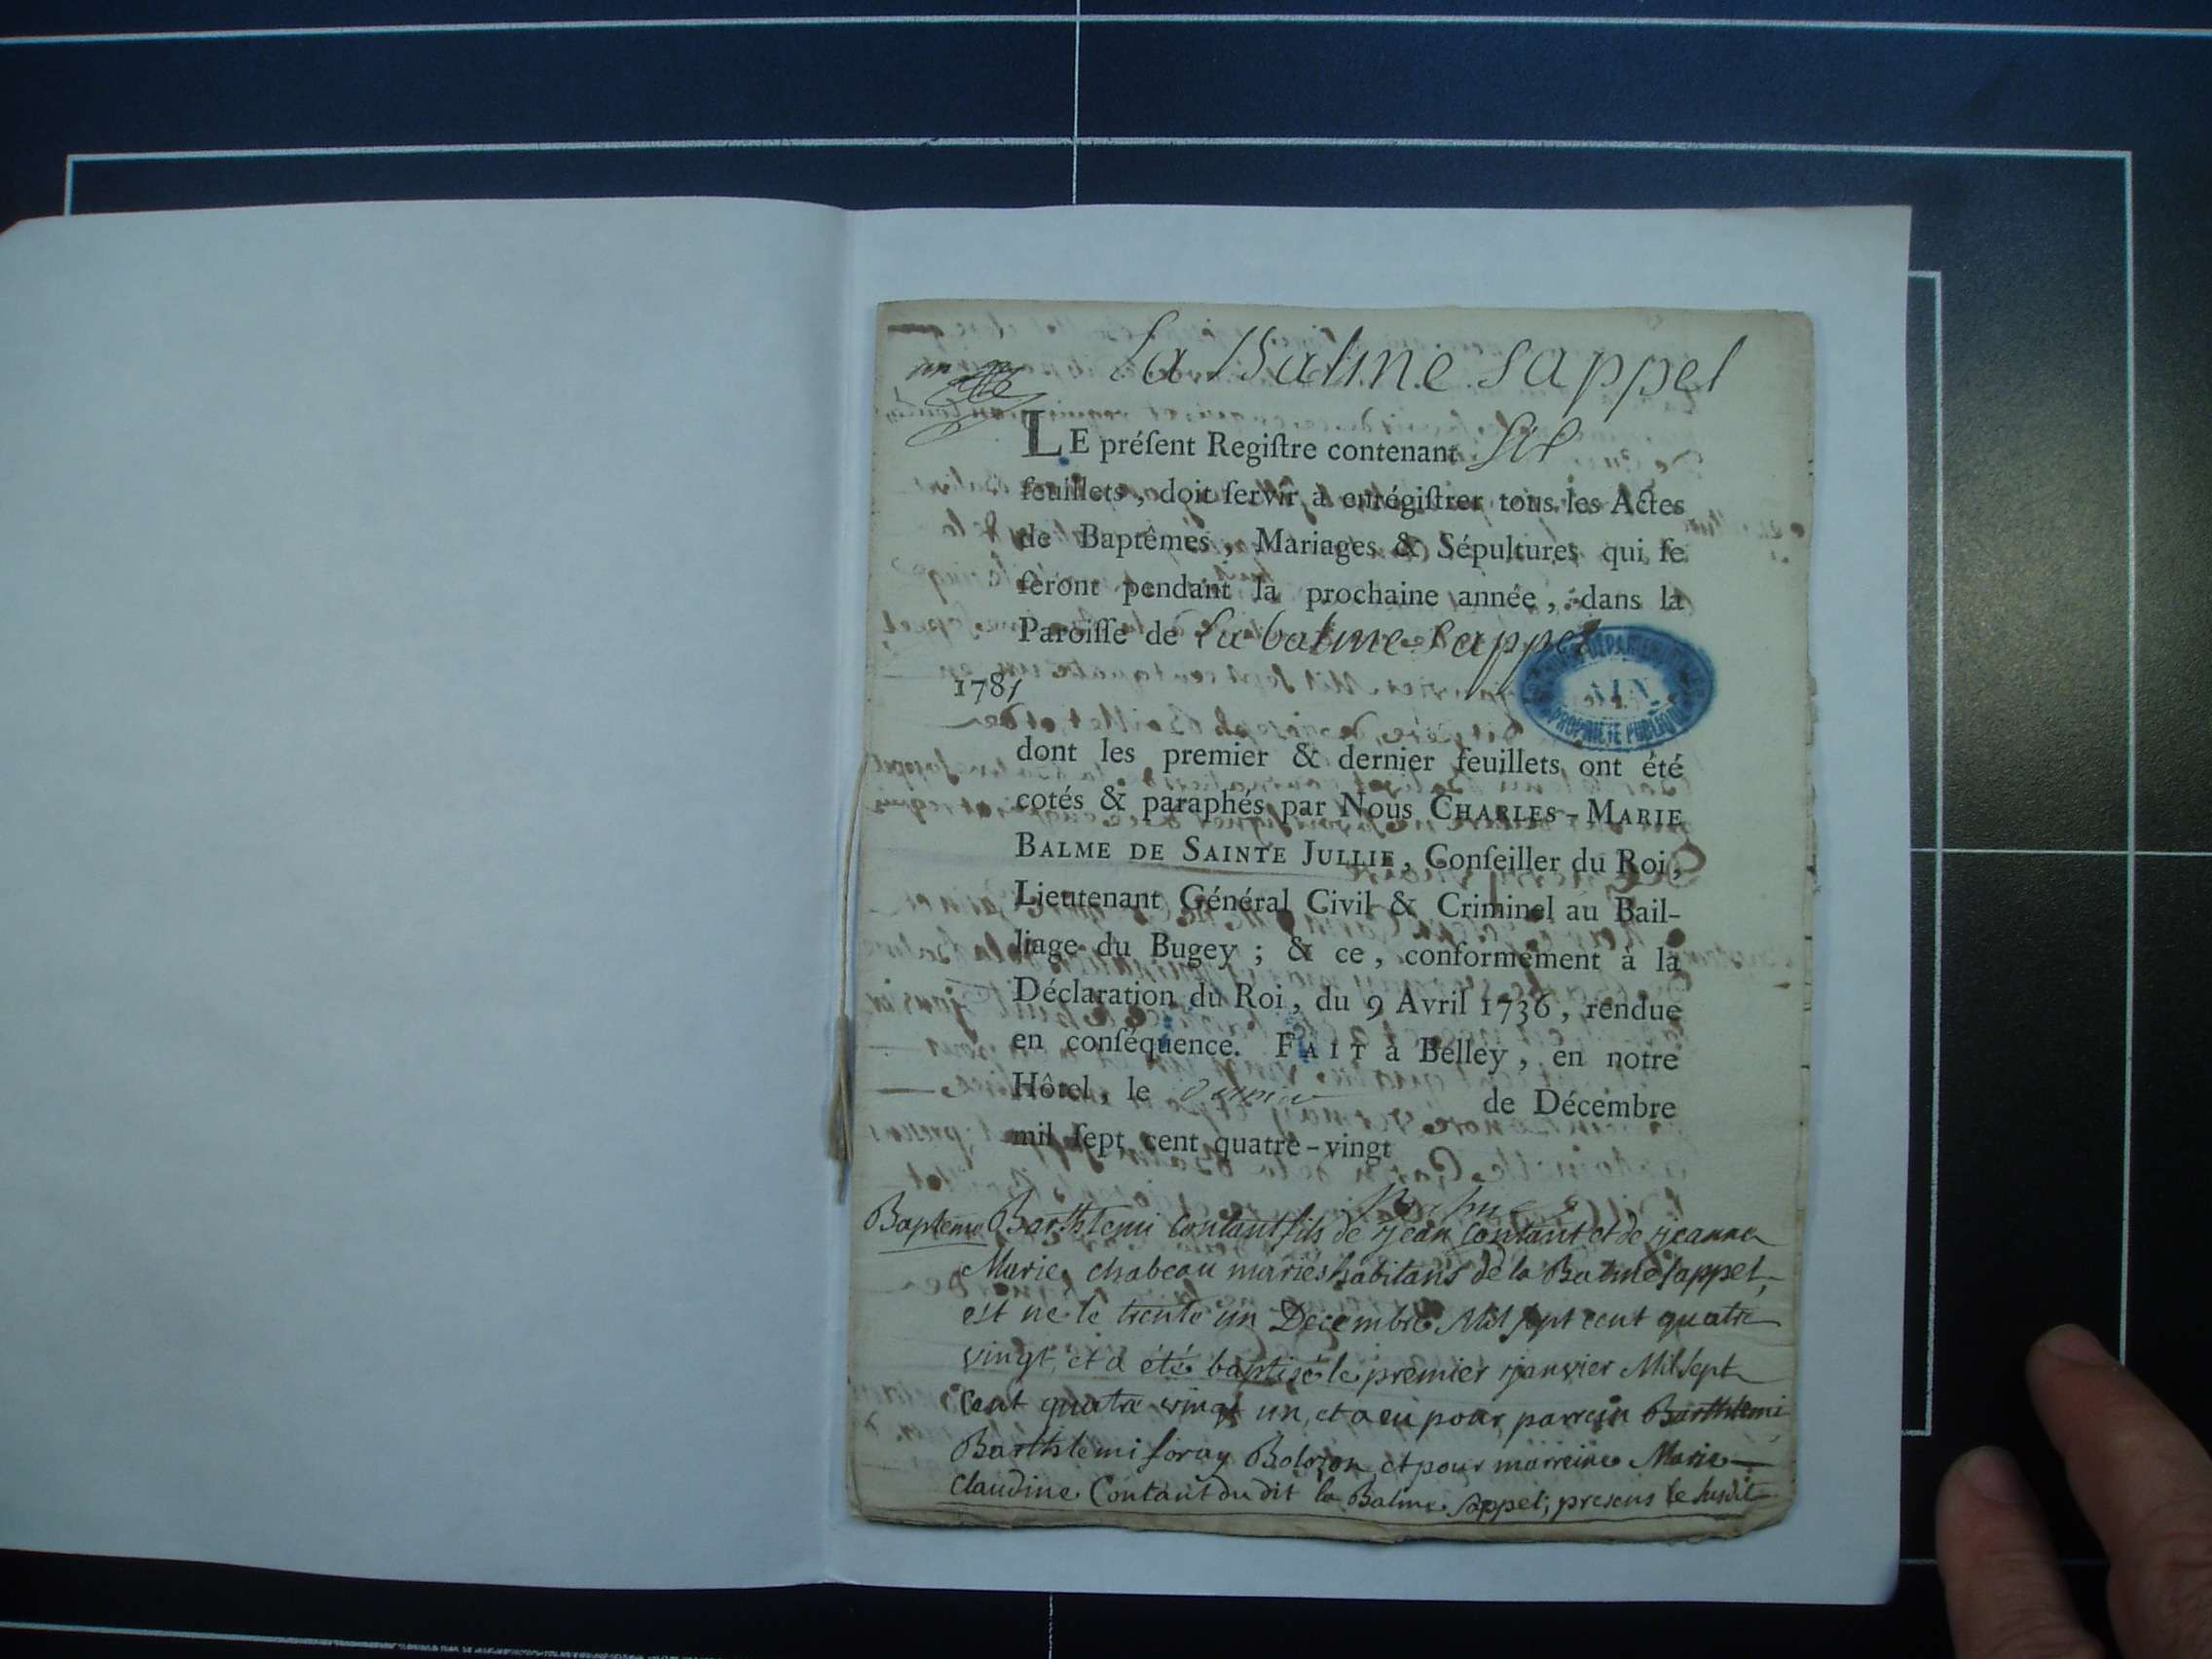 La Balme sappel
LE préſent Regiſtre contenant six
feuillets, doit ſervir à enrégiſtrer tous les Actes
de Baptêmes, Mariages & Sépultures qui ſe
feront pendant la prochaine année, dans la
Paroiſſe de La balme sappel
1781
ARCHIVES DÉPARTEMENTALES
AIN
PROPRIÉTÉ PUBLIQUE
dont les premier & dernier feuillets ont été
cotés & paraphés par Nous CHARLES-MARIE
BALME DE SAINTE JULLIE, Conſeiller du Roi,
Lieutenant Général Civil & Criminel au Bail-
liage du Bugey ; & ce, conformément à la
Déclaration du Roi, du 9 Avril 1736, rendue
en conſéquence. FAIT à Belley, en notre
Hôtel, le de Décembre
mil ſept cent quatre-vingt
Baptême Barthlemi Contant fils de jean Contant et de jeanne
Marie chabeau mariés habitans de la Balme sappel,
est né le trente un Decembre Mil sept cent quatre
vingt, et a été baptisé le premier janvier Mil sept
Cent quatre vingt un, et a eu pour parrein Barthlemi
Barthlemi foray Bolozon, et pour marreine Marie
Claudine Contant du dit la Balme sappel; presens le susdit